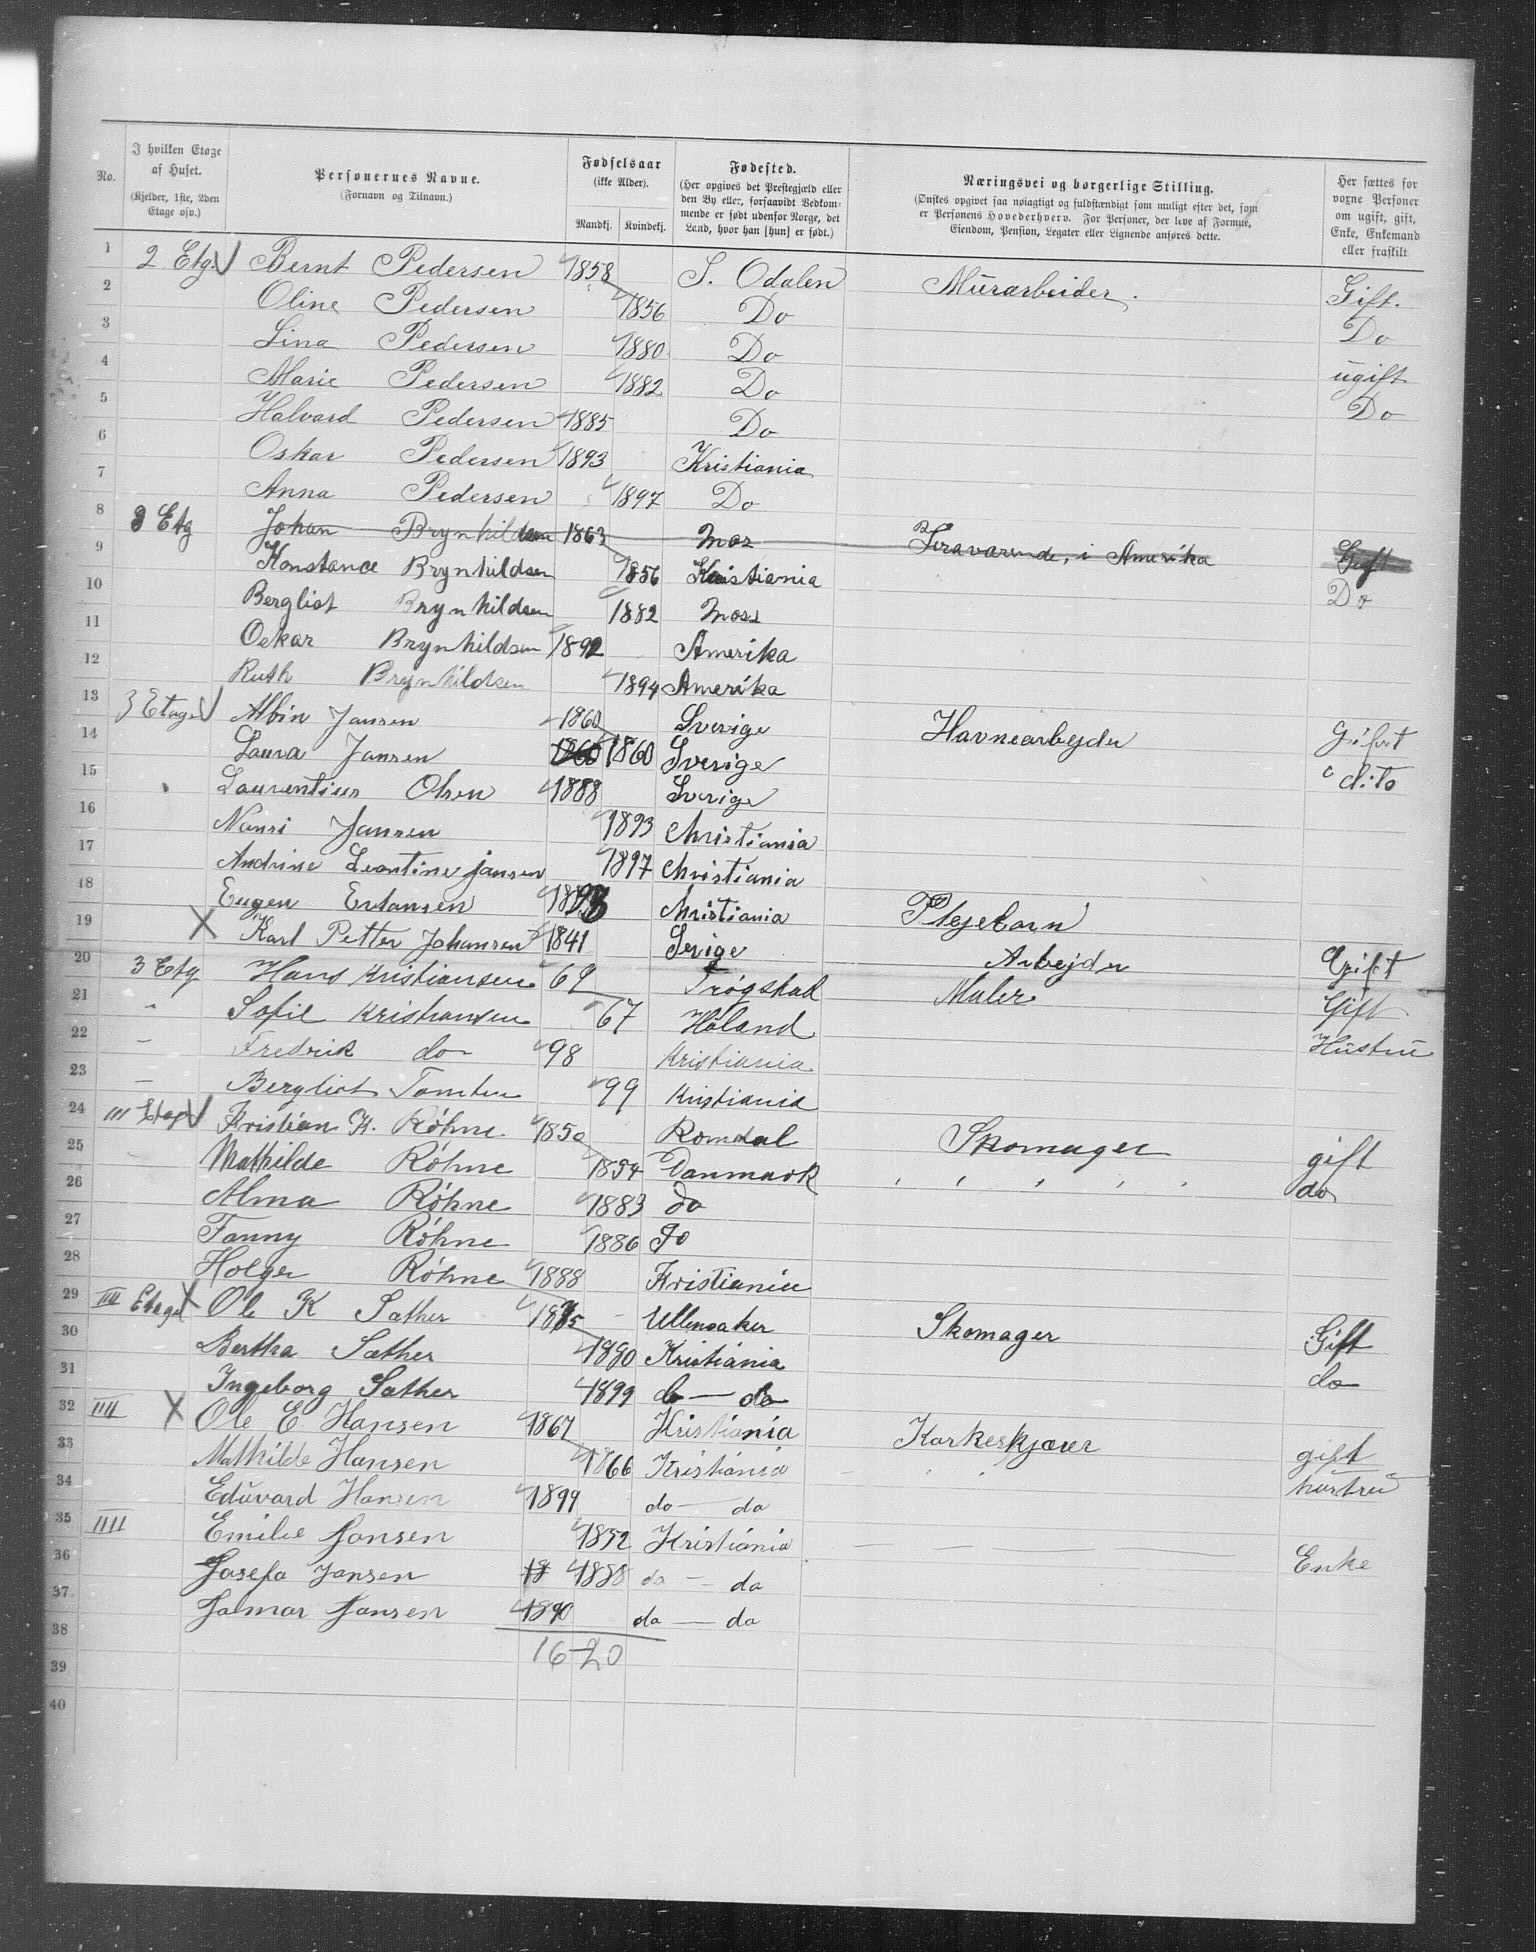 No.
I hvilken Etage af Huset. (Kjelder, 1ste, 2den Etage osv.)
Personernes Navne. (Fornavn og Tilnavn.)
Fødselsaar (ikke Alder). Mandkj. Kvindekj.
Fødested. (Her opgives det Prestegjæld eller den By eller, forsaavidt Vedkommende er født udenfor Norge, det Land, hvor han [hun] er født.)
Næringsvei og borgerlige Stilling. (Ønskes opgivet saa nøiagtigt og fuldstændigt som muligt efter det, som er Personens Hovederhverv. For Personer, der leve af Formue, Eiendom, Pension, Legater eller Lignende anføres dette.
Her sættes for voxne Personer om ugift, gift, Enke, Enkemand eller fraskilt.
1 2 Etg. Bernt Pedersen 1858 S. Odalen Murarbeider. Gift.
2 Oline Pedersen 1856 Do Do
3 Lina Pedersen 1880 Do ugift
4 Marie Pedersen 1882 Do Do
5 Halvard Pedersen 1885 Do
6 Oskar Pedersen 1893 Kristiania
7 Anna Pedersen 1897 Do
8 3 Etg Johan Brynhildsen 1863 Mos Fraværende, i Amerika Gift
9 Konstance Brynhildsen 1856 Kristiania Do
10 Bergliot Brynhildsen 1882 Moss
11 Oskar Brynhildsen 1892 Amerika
12 Ruth Brynhildsen 1894 Amerika
13 3 Etage Albin Jansen 1860 Sverige Havnearbejder Gifvt
14 Laura Jansen 1860 1860 Sverige dito
15 Laurentius Olsen 1888 Sverige
16 Nanni Jansen 1893 Christiania
17 Andrine Leontine jansen 1897 Christiania
18 Eugen Ertansen Christiania Plejebarn
19 X Karl Petter Johansen 1841 Serige Arbejder Gift
20 3 Etg Hans Kristiansen 69 Trøgstad Maler Gift
21 " Sofie Kristiansen 67 Høland Hustru
22 - Fredrik do 98 Kristiania
23 - Bergliot Tomter 99 Kristiania
24 III Etage Kristian K. Röhne 1850 Romdal Skomager gift
25 Mathilde Röhne 1854 Danmark " " " " " do
26 Alma Röhne 1883 do
27 Fanny Röhne 1886 do
28 Holger Röhne 1888 Kristiania
29 IIII Etage X Ole K Sæther 1875 Ullensaker Skomager Gift
30 Bertha Sæther 1880 Kristiania do
31 Ingeborg Sæther 1899 do — do
32 IIII X Ole E Hansen 1867 Kristiania Korkeskjærer gift
33 Mathilde Hansen 1866 Kristiania hustru
34 Eduvard Hansen 1899 do — do
35 IIII Emilie Jansen 1852 Kristiania — — — — Enke
36 Josefa Jansen 18 1888 do — do
37 Jalmar Jansen 1890 do — do
38 16-20
39
40